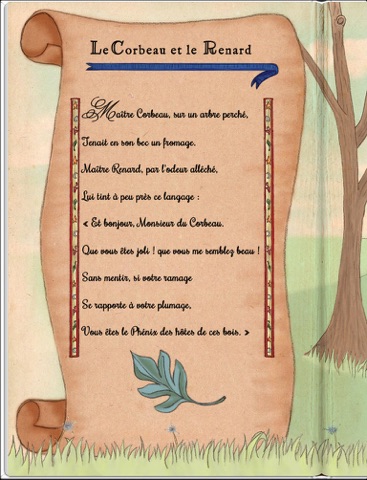 Le Corbeau et le Renard
Maître Corbeau, sur un arbre perché,
Tenait en son bec un fromage.
Maître Renard, par l'odeur alléché,
Lui tint à peu près ce langage :
« Et bonjour, Monsieur du Corbeau.
Que vous êtes joli ! que vous me semblez beau !
Sans mentir, si votre ramage
Se rapporte à votre plumage,
Vous êtes le Phénix des hôtes de ces bois. »